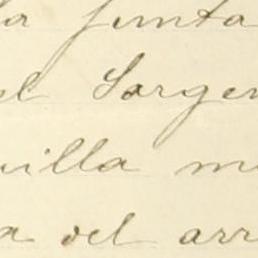 la Junta
el Sargen
uilla m
a del arr